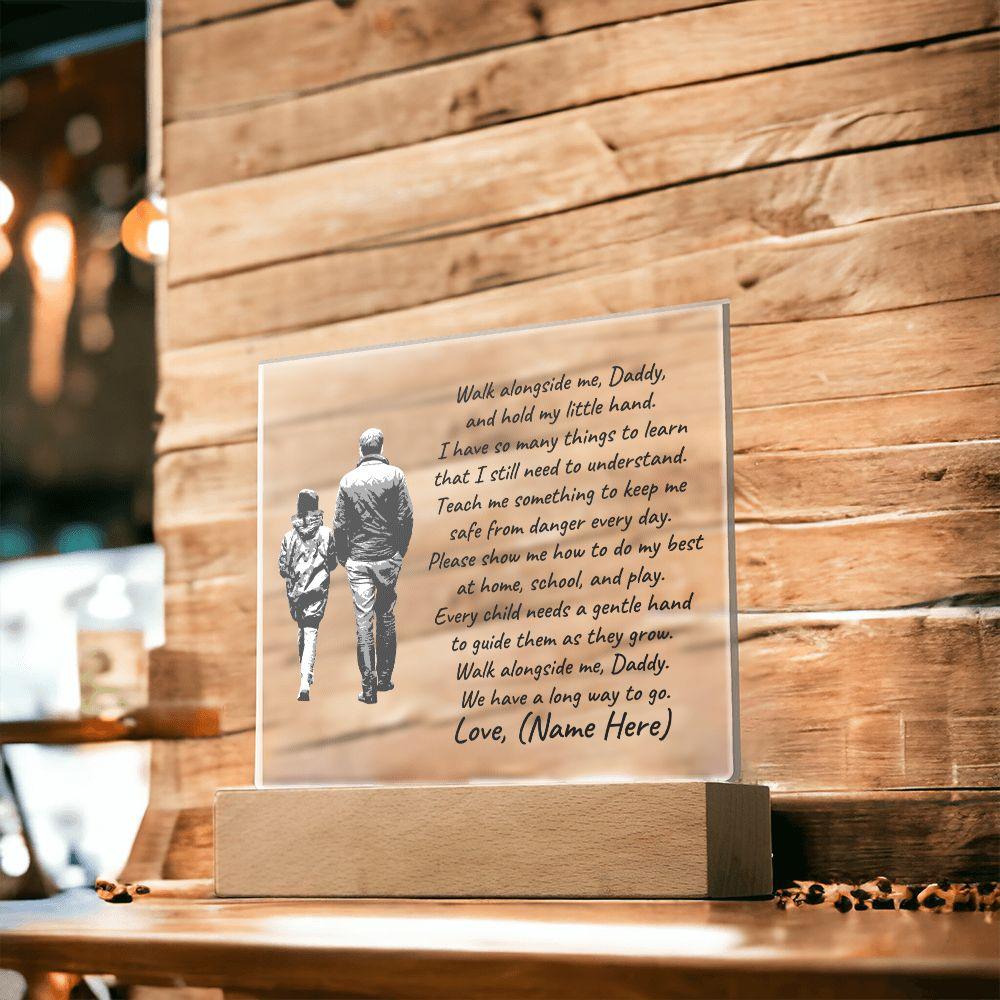 Walk alongside me, Daddy,
and hold my little hand.
I have so many things to learn
that I still need to understand.
Teach me something to keep me
safe from danger every day.
Please show me how to do my best
at home, school, and play.
Every child needs a gentle hand
to guide them as they grow.
Walk alongside me, Daddy.
We have a long way to go.
Love, (Name Here)